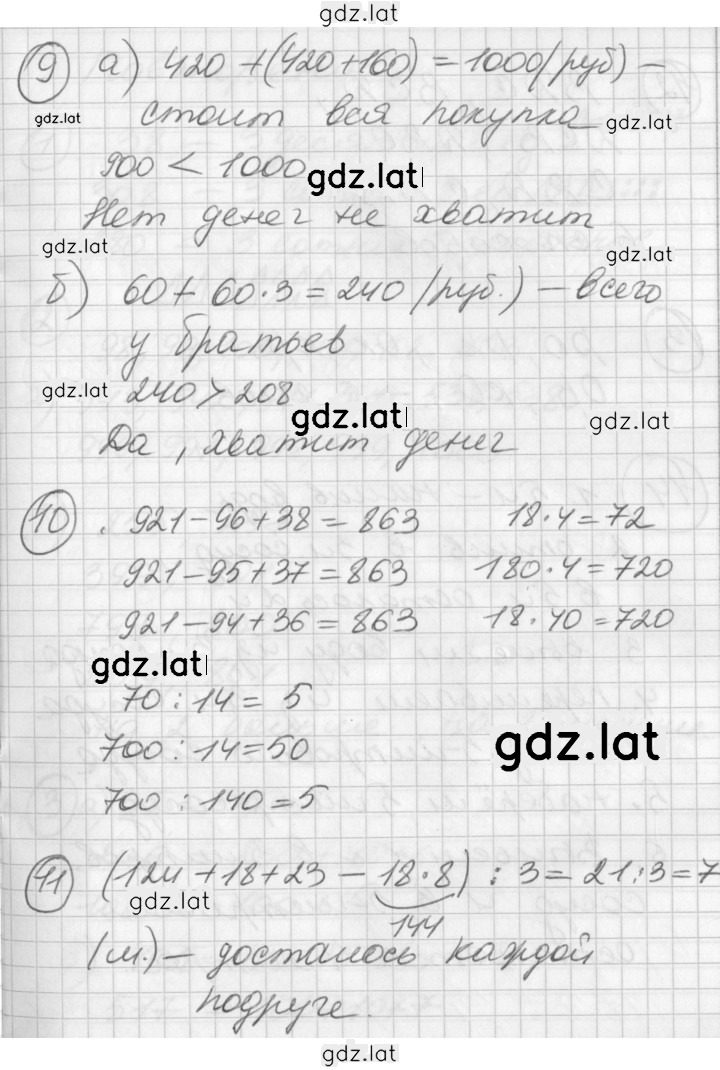 gdz.lat
9 а) 420 + (420+160) = 1000 (руб) –
gdz.lat стоит вся покупка gdz.lat
900 < 1000 gdz.lat
Нет денег не хватит
gdz.lat gdz.lat
б) 60 + 60·3 = 240 (руб.) – всего
у братьев
gdz.lat 240 > 208 gdz.lat gdz.lat
Да, хватит денег
10 . 921–96+38 = 863 18·4=72
921–95+37=863 180·4=720
921–94+36=863 18·40=720
gdz.lat
70 : 14 = 5
700 : 14=50 gdz.lat
700 : 140 = 5
11 (124+18+23 – 18·8) : 3 = 21:3=7
gdz.lat 144
(м.) – досталось каждой
подруге.
gdz.lat